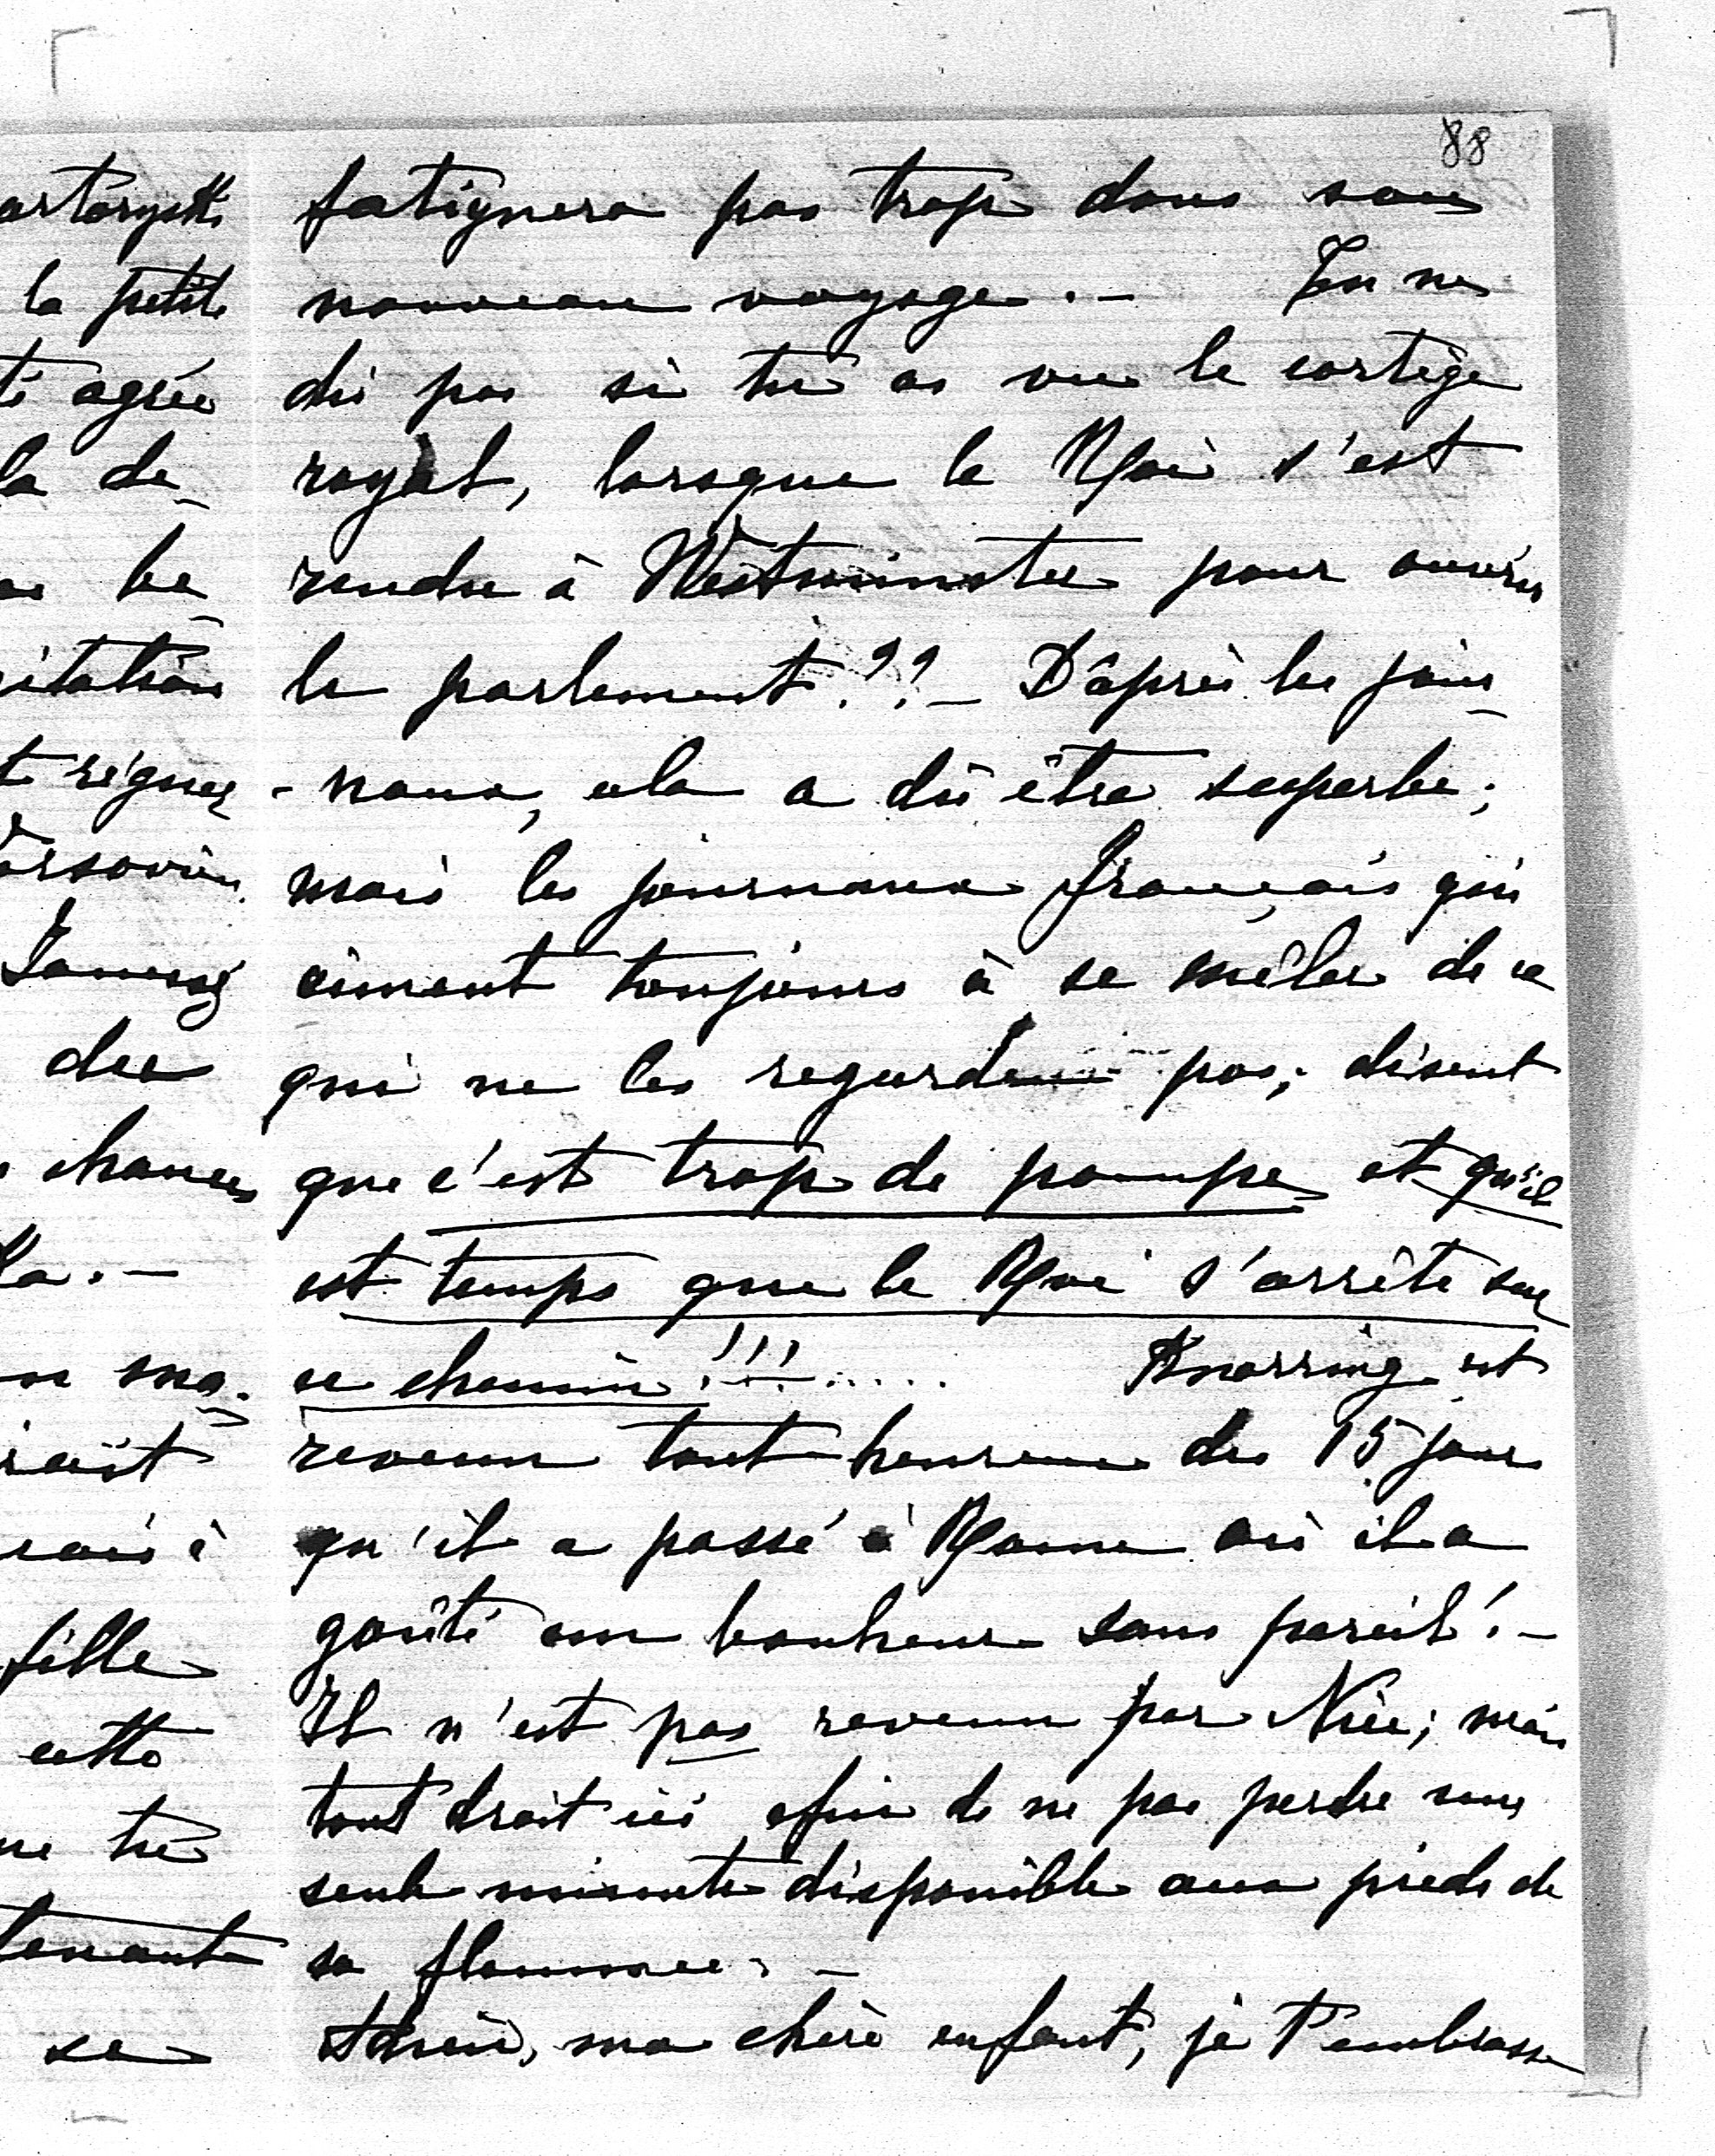 88
fatiguera pas trop dans son
nouveau voyage.— Tu ne
dis pas si tu as vu le cortège
royal, lorsque le Roi s'est
rendu à Westminster pour ouvrir
le parlement??— D'après les jour-
-naux, cela a dû être superbe;
mais les journaux français qui
aiment toujours à se mêler de ce
qui ne les regarde pas; disent
que c'est trop de pompe et qu'il
est temps que le Roi s'arrête sur
ce chemin!!!..... Knorring est
revenu tout heureux des 15 jours
qu'il a passé à Rome où il a
goûté un bonheur sans pareil!—
Il n'est pas revenu par Nice; mais
tout droit ici afin de ne pas perdre une
seule minute disponible aux pieds de
sa flamme.—
Adieu, ma chère enfant, je t'embrasse
la petite
agrée
la de-
régner
du
chances
la.—
ma-
fille
cette
tu
se